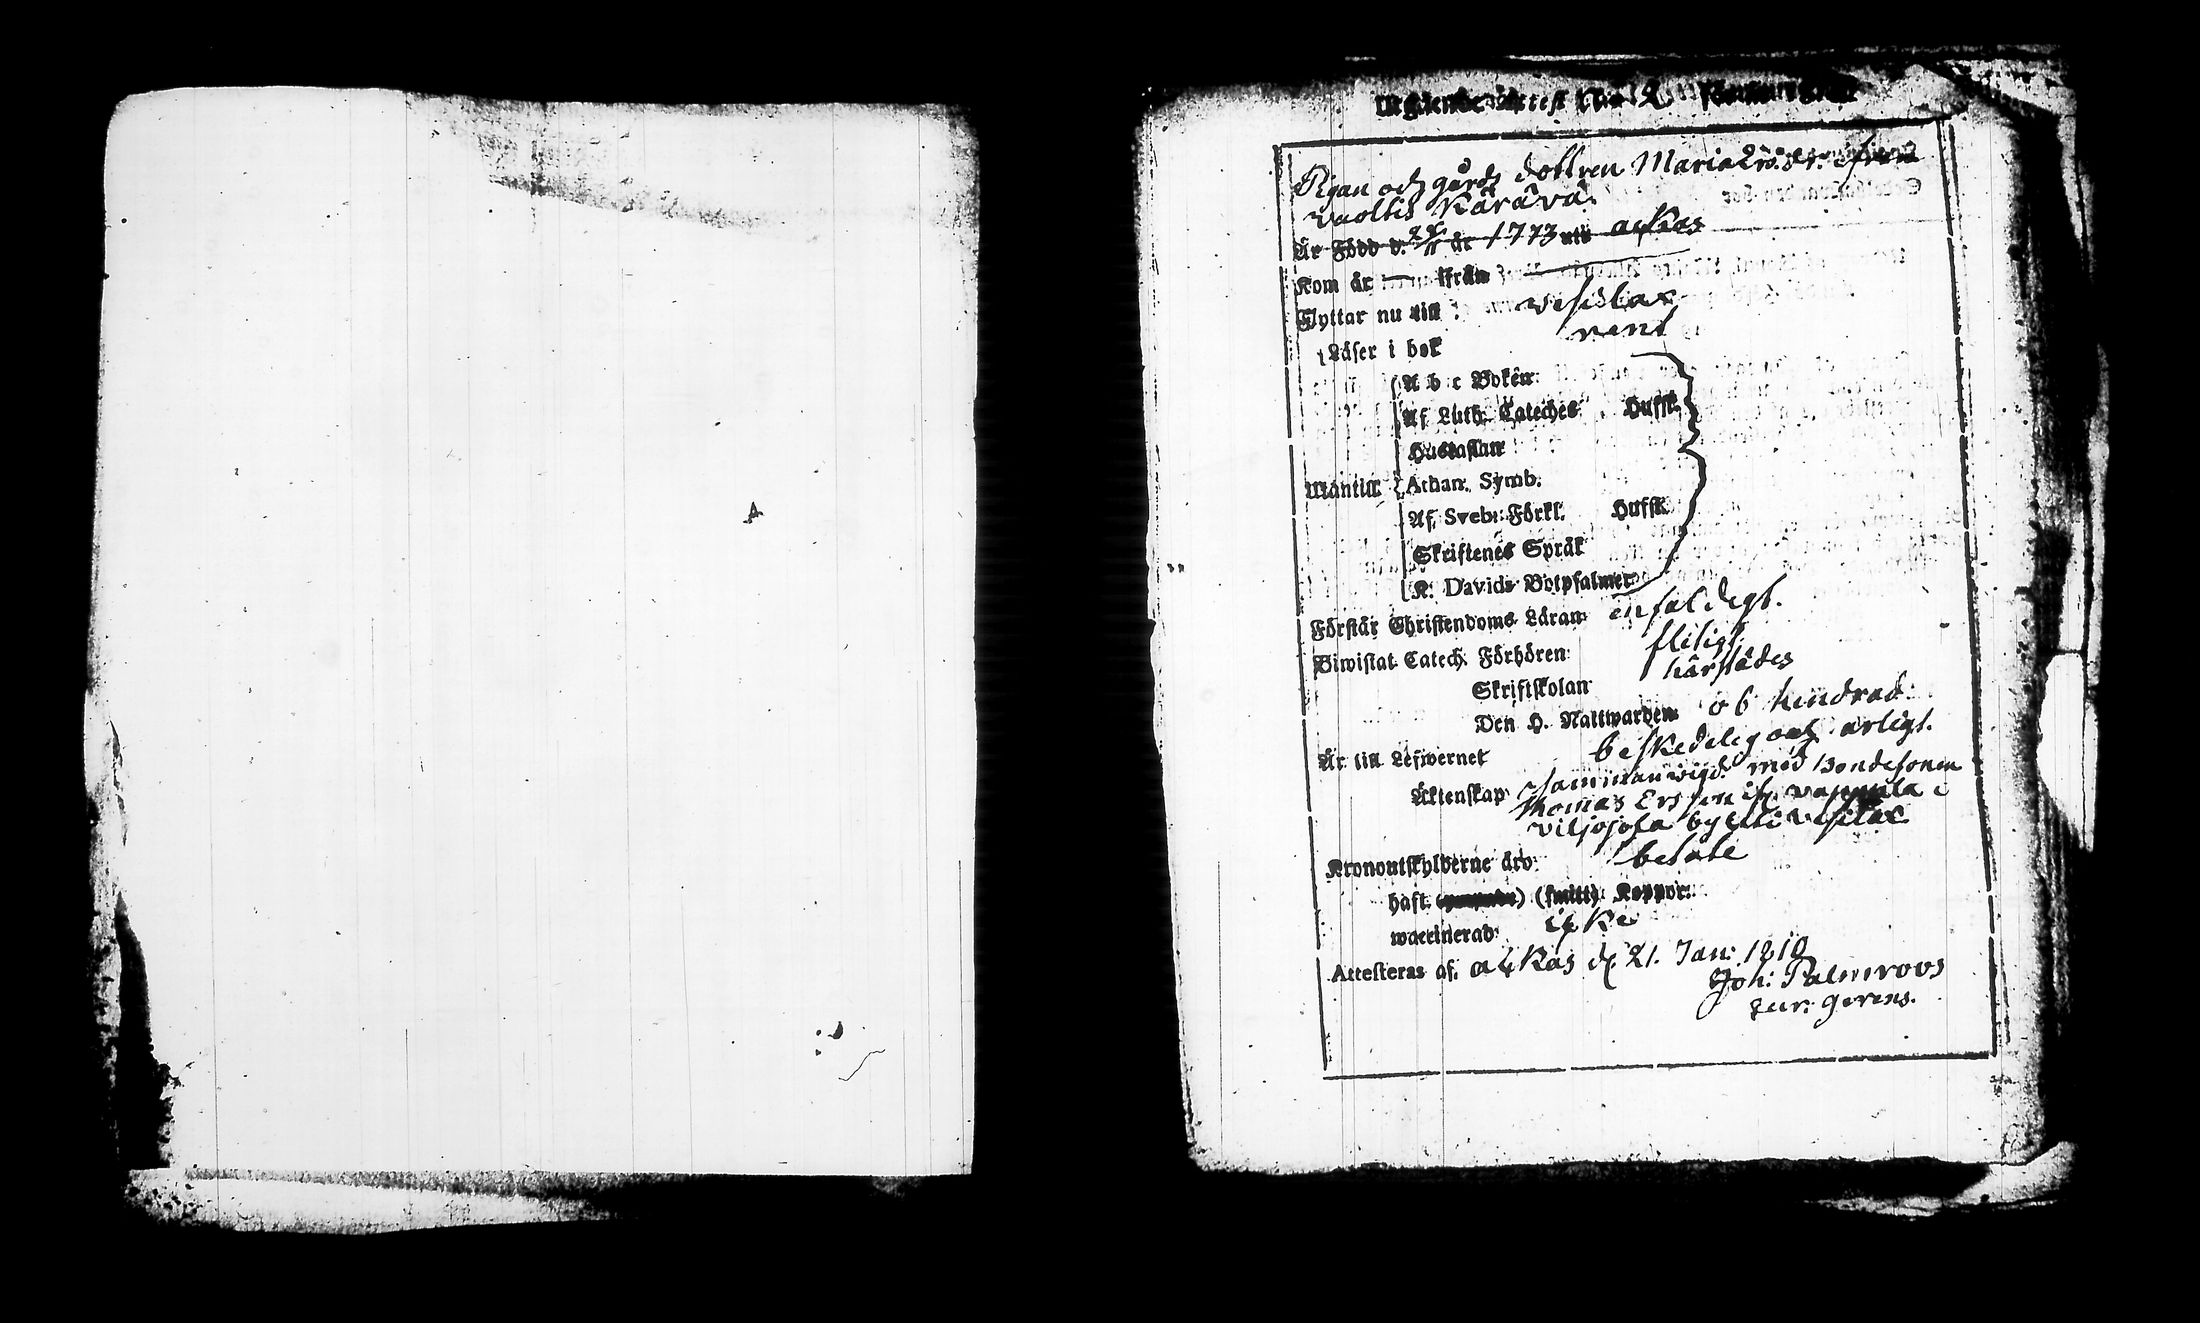 Utgående Attest No 2
Pigan och gårds dottren Maria Ers: dr. ifrån
Kärävä
Är Född d. 11 år 1773 uti ackas
Kom år ifrån
Flyttar nu till vesilax
Läser i bok rent
A b c Boken
Af Luth. Cateches Hufst.
Hustaflan
Utantill Athan. Symb.
Af Sveb. Förkl. Hufst.
Skriftenes Språk
K. Davids Botpsalmer
Förstår Christendoms Läran enfaldigt.
Biwistat Catech. Förhören fliligt
Skriftskolan härstädes
Den H. Nattwarden obhindrad
Är till Lefwernet beskedelig och ärligt.
Äktenskap sammanvigd med Bondesonen
Thomas Ersson if: i
viljojofa by uti vesilax
Kronoutskylderne äro betalte
haft (smitt) Koppor
waccinerad icke
Attesteras af. ackas d. 21. Jan: 1810
Joh: Palmroos
cur: gerens.
A